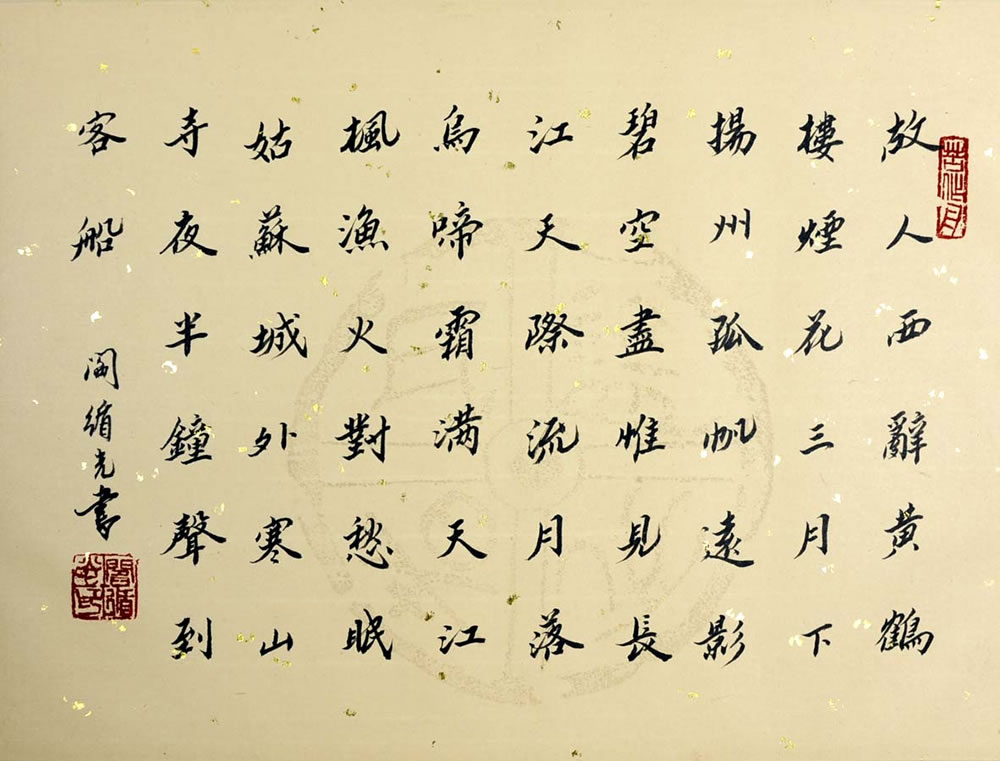 故人西辭黃鶴
樓煙花三月下
揚州孤帆遠影
碧空盡惟見長
江天際流月落
烏啼霜满天江
楓漁火對愁眠
姑蘇城外寒山
寺夜半鐘聲到
客船
閻循光書